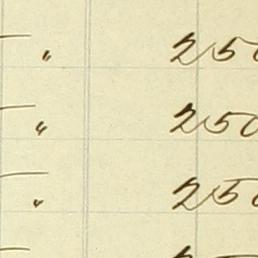 — " 250
— " 250
— " 250